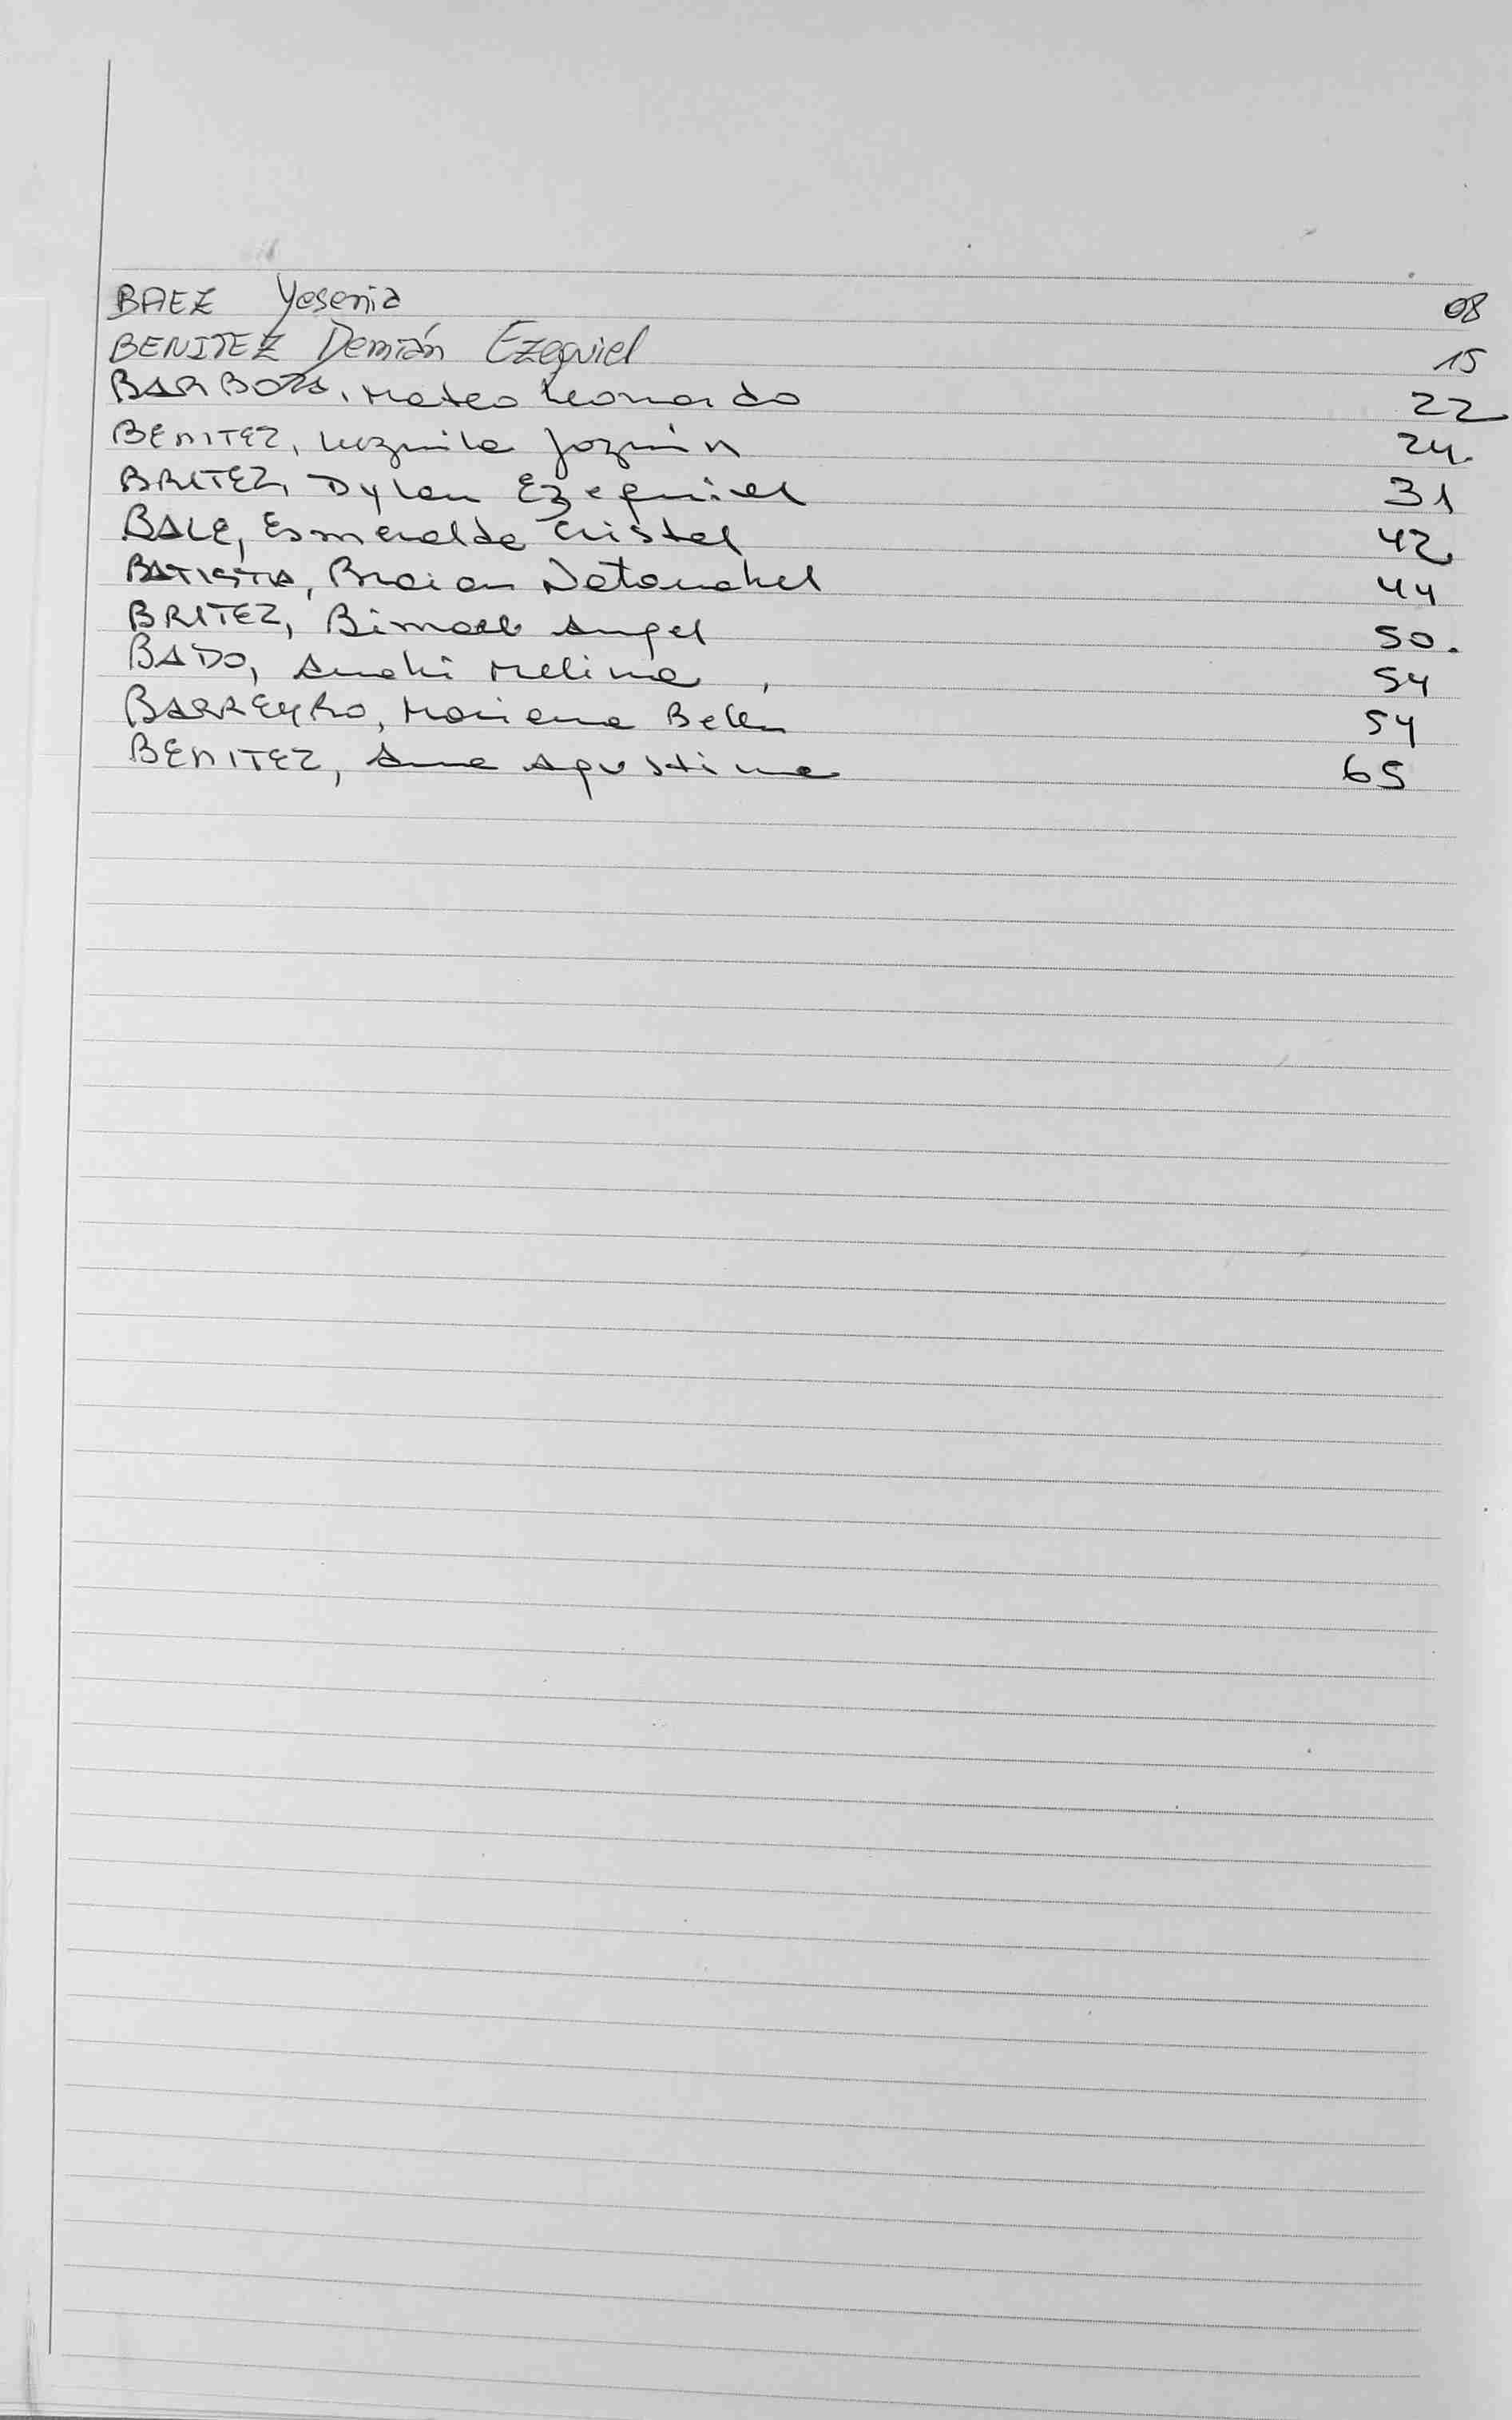 BAEZ Yesenia 08
BENITEZ Demián Ezequiel 15
BARBOZA, Mateo Leonardo 22
BENITEZ, Luzmila Jazmín 24.
BRITEZ, Dylan Ezequiel 31
BALE, Esmeralda Cristel 42
BATISTA, Braian Natanahel 44
BRITEZ, Angel 50.
BADO, Anahi Melina, 54
BARREYRO, Mariana Belen 54
BENITEZ, Ana Agustina 65